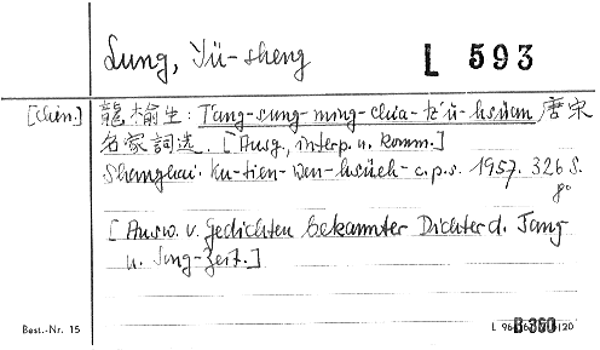 Lung, Yü-sheng
L 593
[chin.] 龍榆生: T'ang-sung-ming-chia-tz'ŭ-hsüan 唐宋
名家詞选. [Ausg., interp. u. komm.]
Shanghai: Ku-tien-wen-hsüeh-c.p.s. 1957. 326 S.
8°
[Ausw. v. Gedichten bekannter Dichter d. Tang
u. Sung-Zeit.]
Best.-Nr. 15
B 360